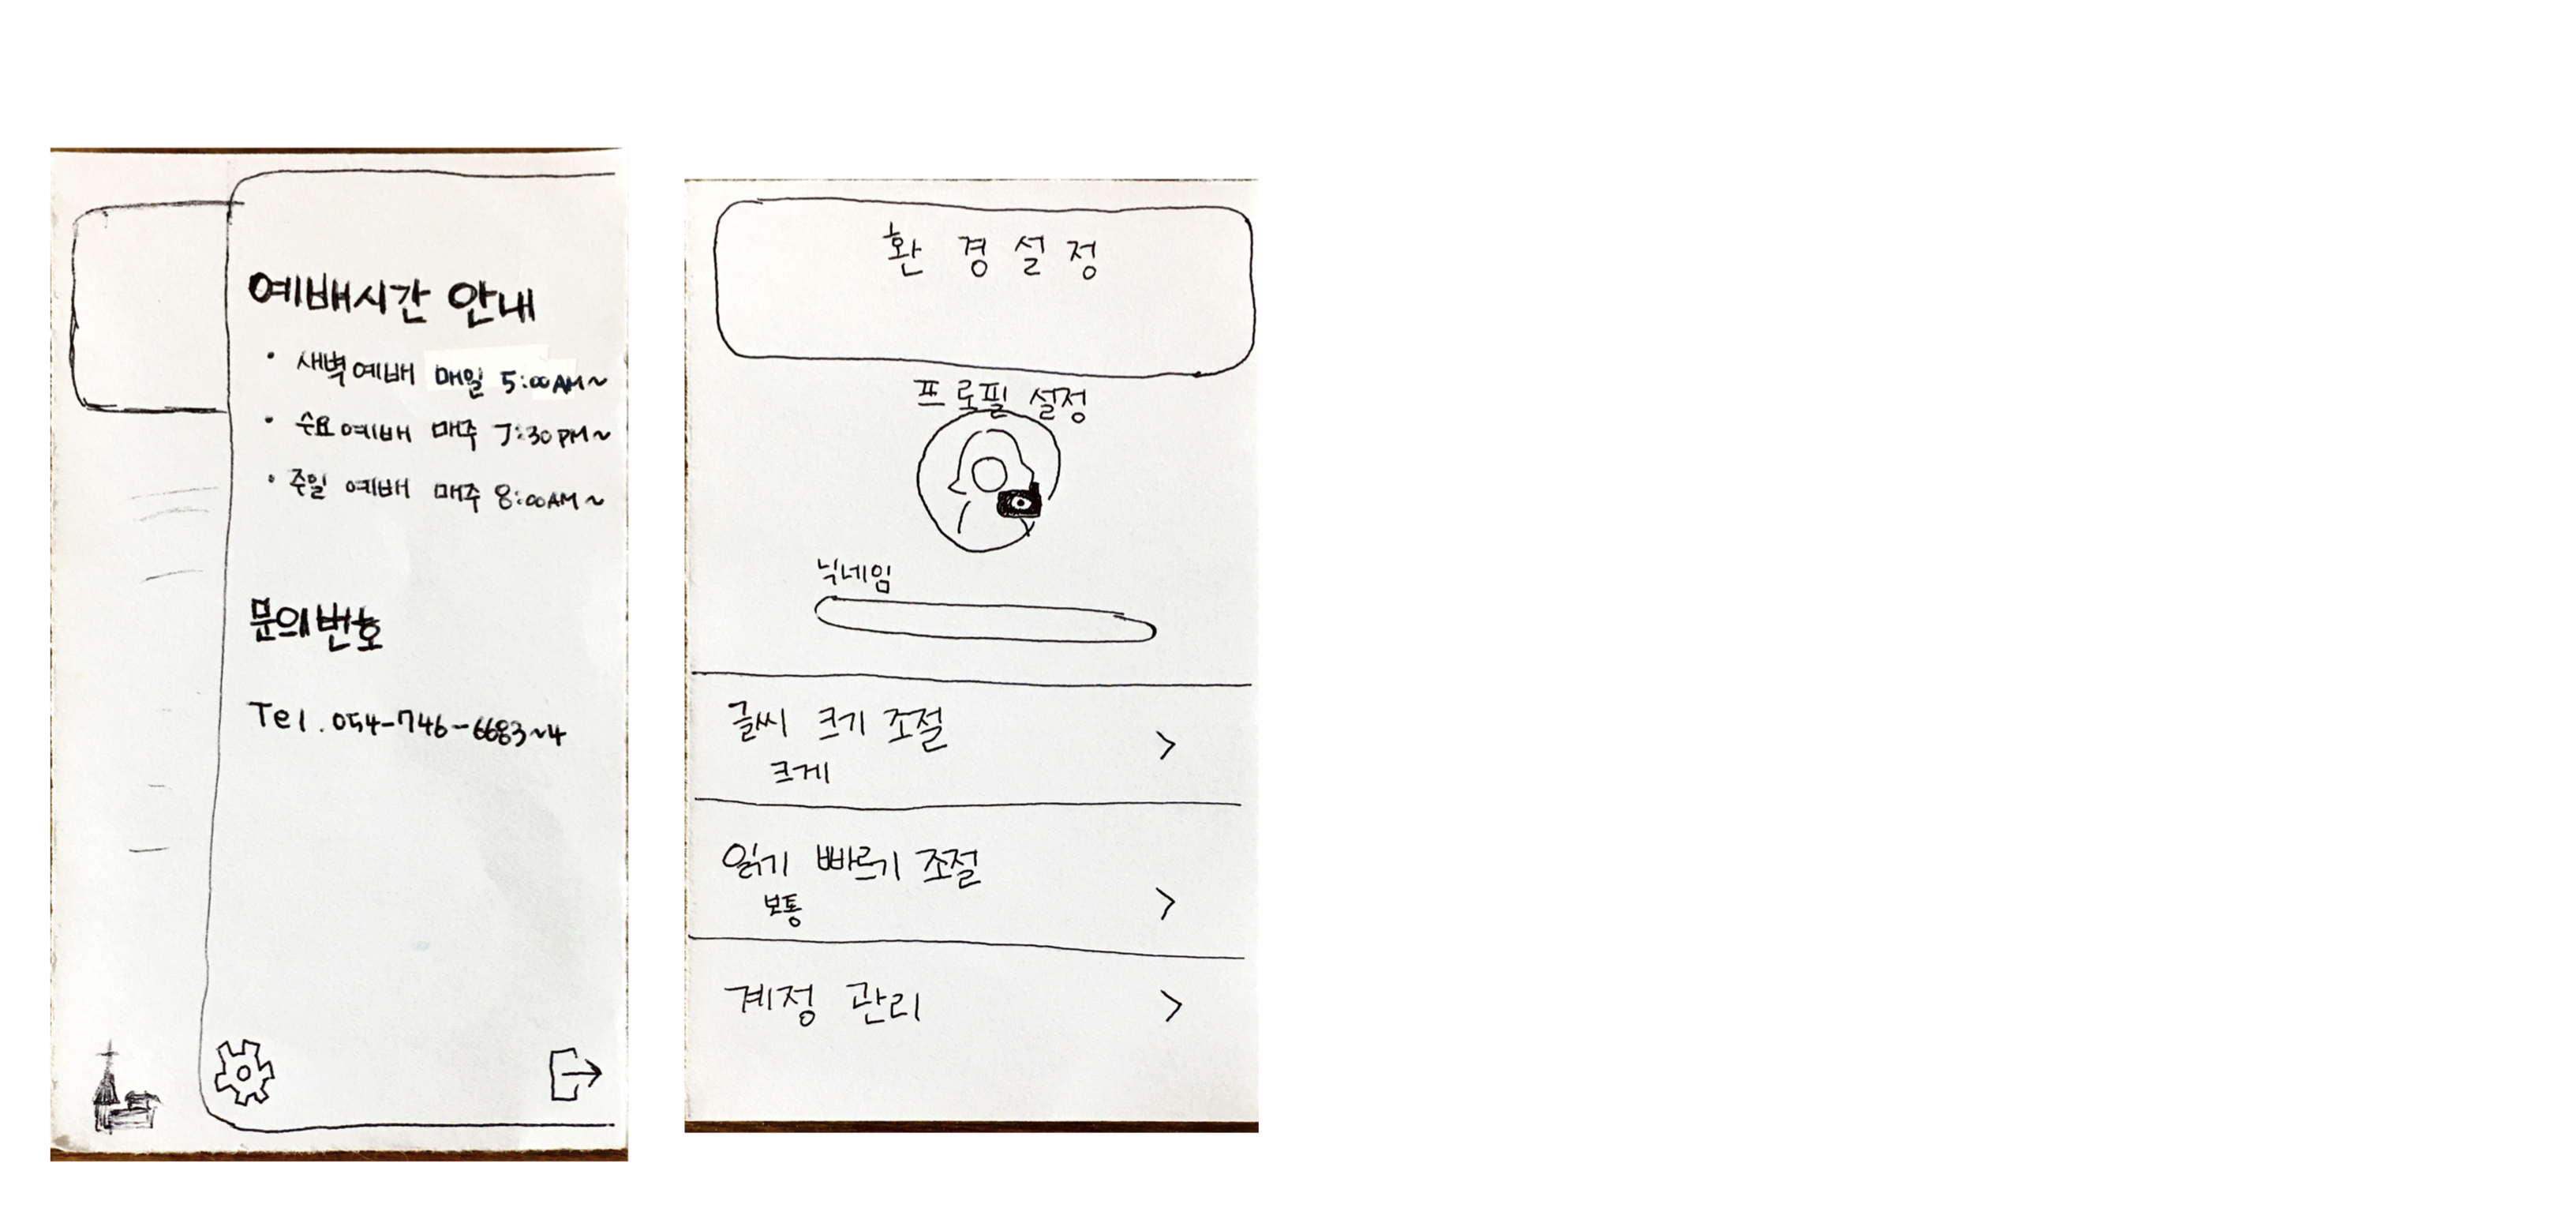 예배시간 안내
· 새벽예배 매일 5:00AM~
· 수요예배 매주 7:30PM~
· 주일 예배 매주 8:00AM~
문의번호
Tel. 054-746-6683~4
환경설정
프로필 설정
닉네임
글씨 크기 조절
크게
>
읽기 빠르기 조절
보통
>
계정 관리
>